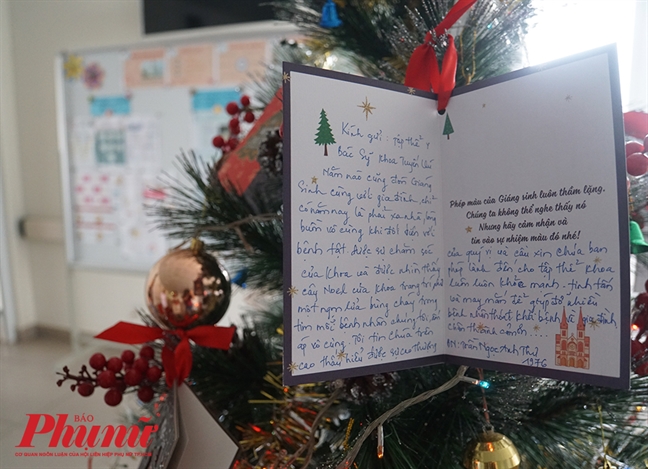 Kính gửi : Tập thể y
Bác Sỹ Khoa Truyền
Năm nào cũng đón Giáng
Sinh cùng với gia đình, chỉ
có năm nay là phải xa nhà, lòng
buồn vô cùng khi đối diện với
bệnh tật. Được sự chăm sóc
của Khoa và được nhìn thấy
cây Noel của Khoa trang trí như
một ngọn lửa bùng cháy trong
tim mỗi bệnh nhân chúng tôi
áp vô cùng. Tôi tin Chúa trên
cao thấu hiểu được sự cao thượng
Phép màu của Giáng sinh luôn thầm lặng.
Chúng ta không thể nghe thấy nó
Nhưng hãy cảm nhận và
tin vào sự nhiệm màu đó nhé!
của quý vị và cầu xin Chúa ban
phép lành đến cho tập thể Khoa
luôn luôn khỏe mạnh
và may mắn để giúp đỡ nhiều
bệnh nhân thoát khỏi bệnh và gia đình
BN: Trần Ngọc Anh Thư
1976
BÁO
Phụ nữ
CƠ QUAN NGÔN LUẬN CỦA HỘI LIÊN HIỆP PHỤ NỮ